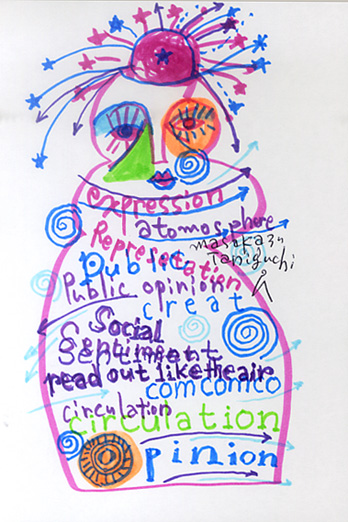 expression
atomosphere
Represetation
masakazu
Taniguchi
Public
Public opinion
creat
Social
Sentiment
read out like the air
comcomco
circulation
circulation
pinion